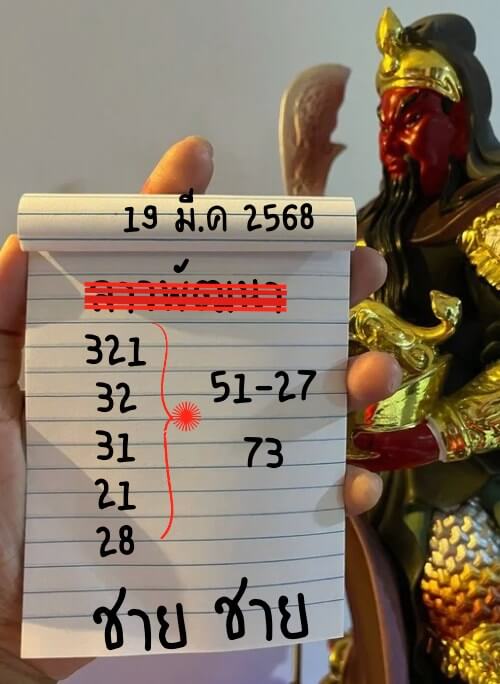 19 มี.ค 2568
ลาวพัฒนา
321
32
31
21
28
51-27
73
ชาย ชาย